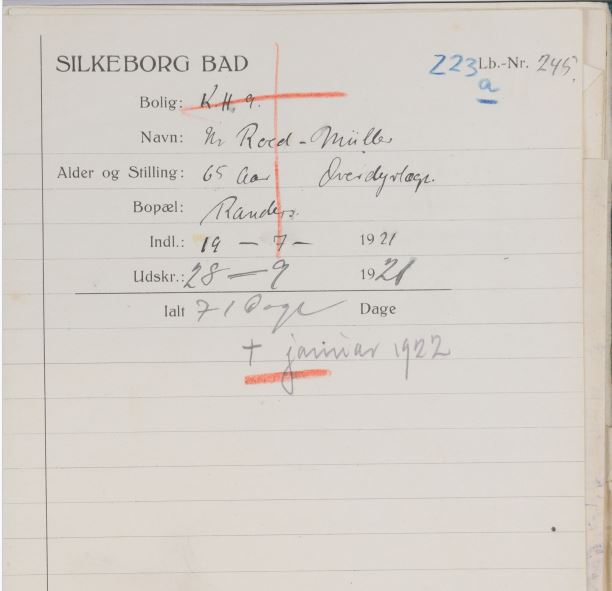 SILKEBORG BAD 223 Lb.-Nr. 245.
a
Bolig: K.H. 9.
Navn: Hr Roed-Müller
Alder og Stilling: 65 Aar Overdyrlæge.
Bopæl: Randers.
Indl.: 19 - 7 - 1921
Udskr.: 28 - 9 1921
Ialt 71 Dage Dage
† januar 1922